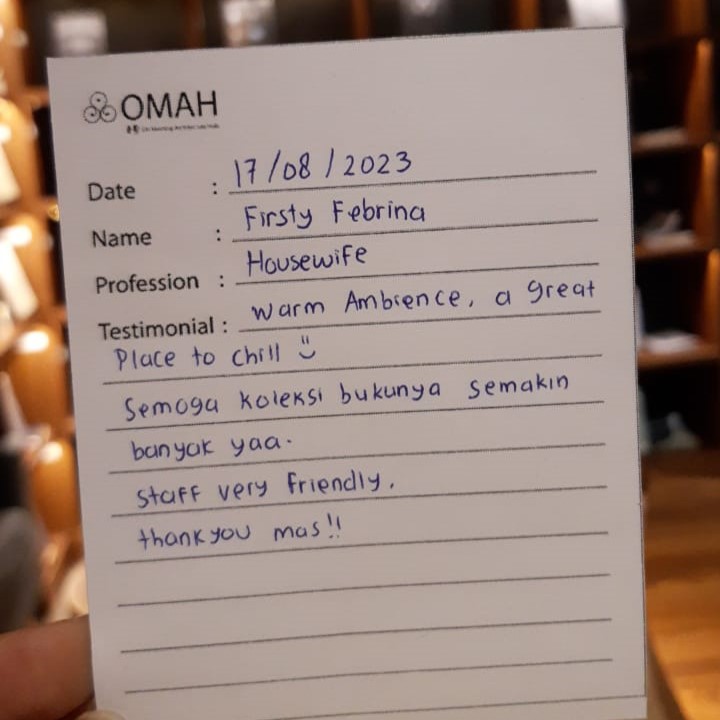 OMAH
Date : 17/08/2023
Name : Firsty Febrina
Profession : Housewife
Testimonial : Warm Ambience, a great
Place to chill
Semoga koleksi bukunya semakin
banyak yaa.
staff very friendly.
thankyou mas!!